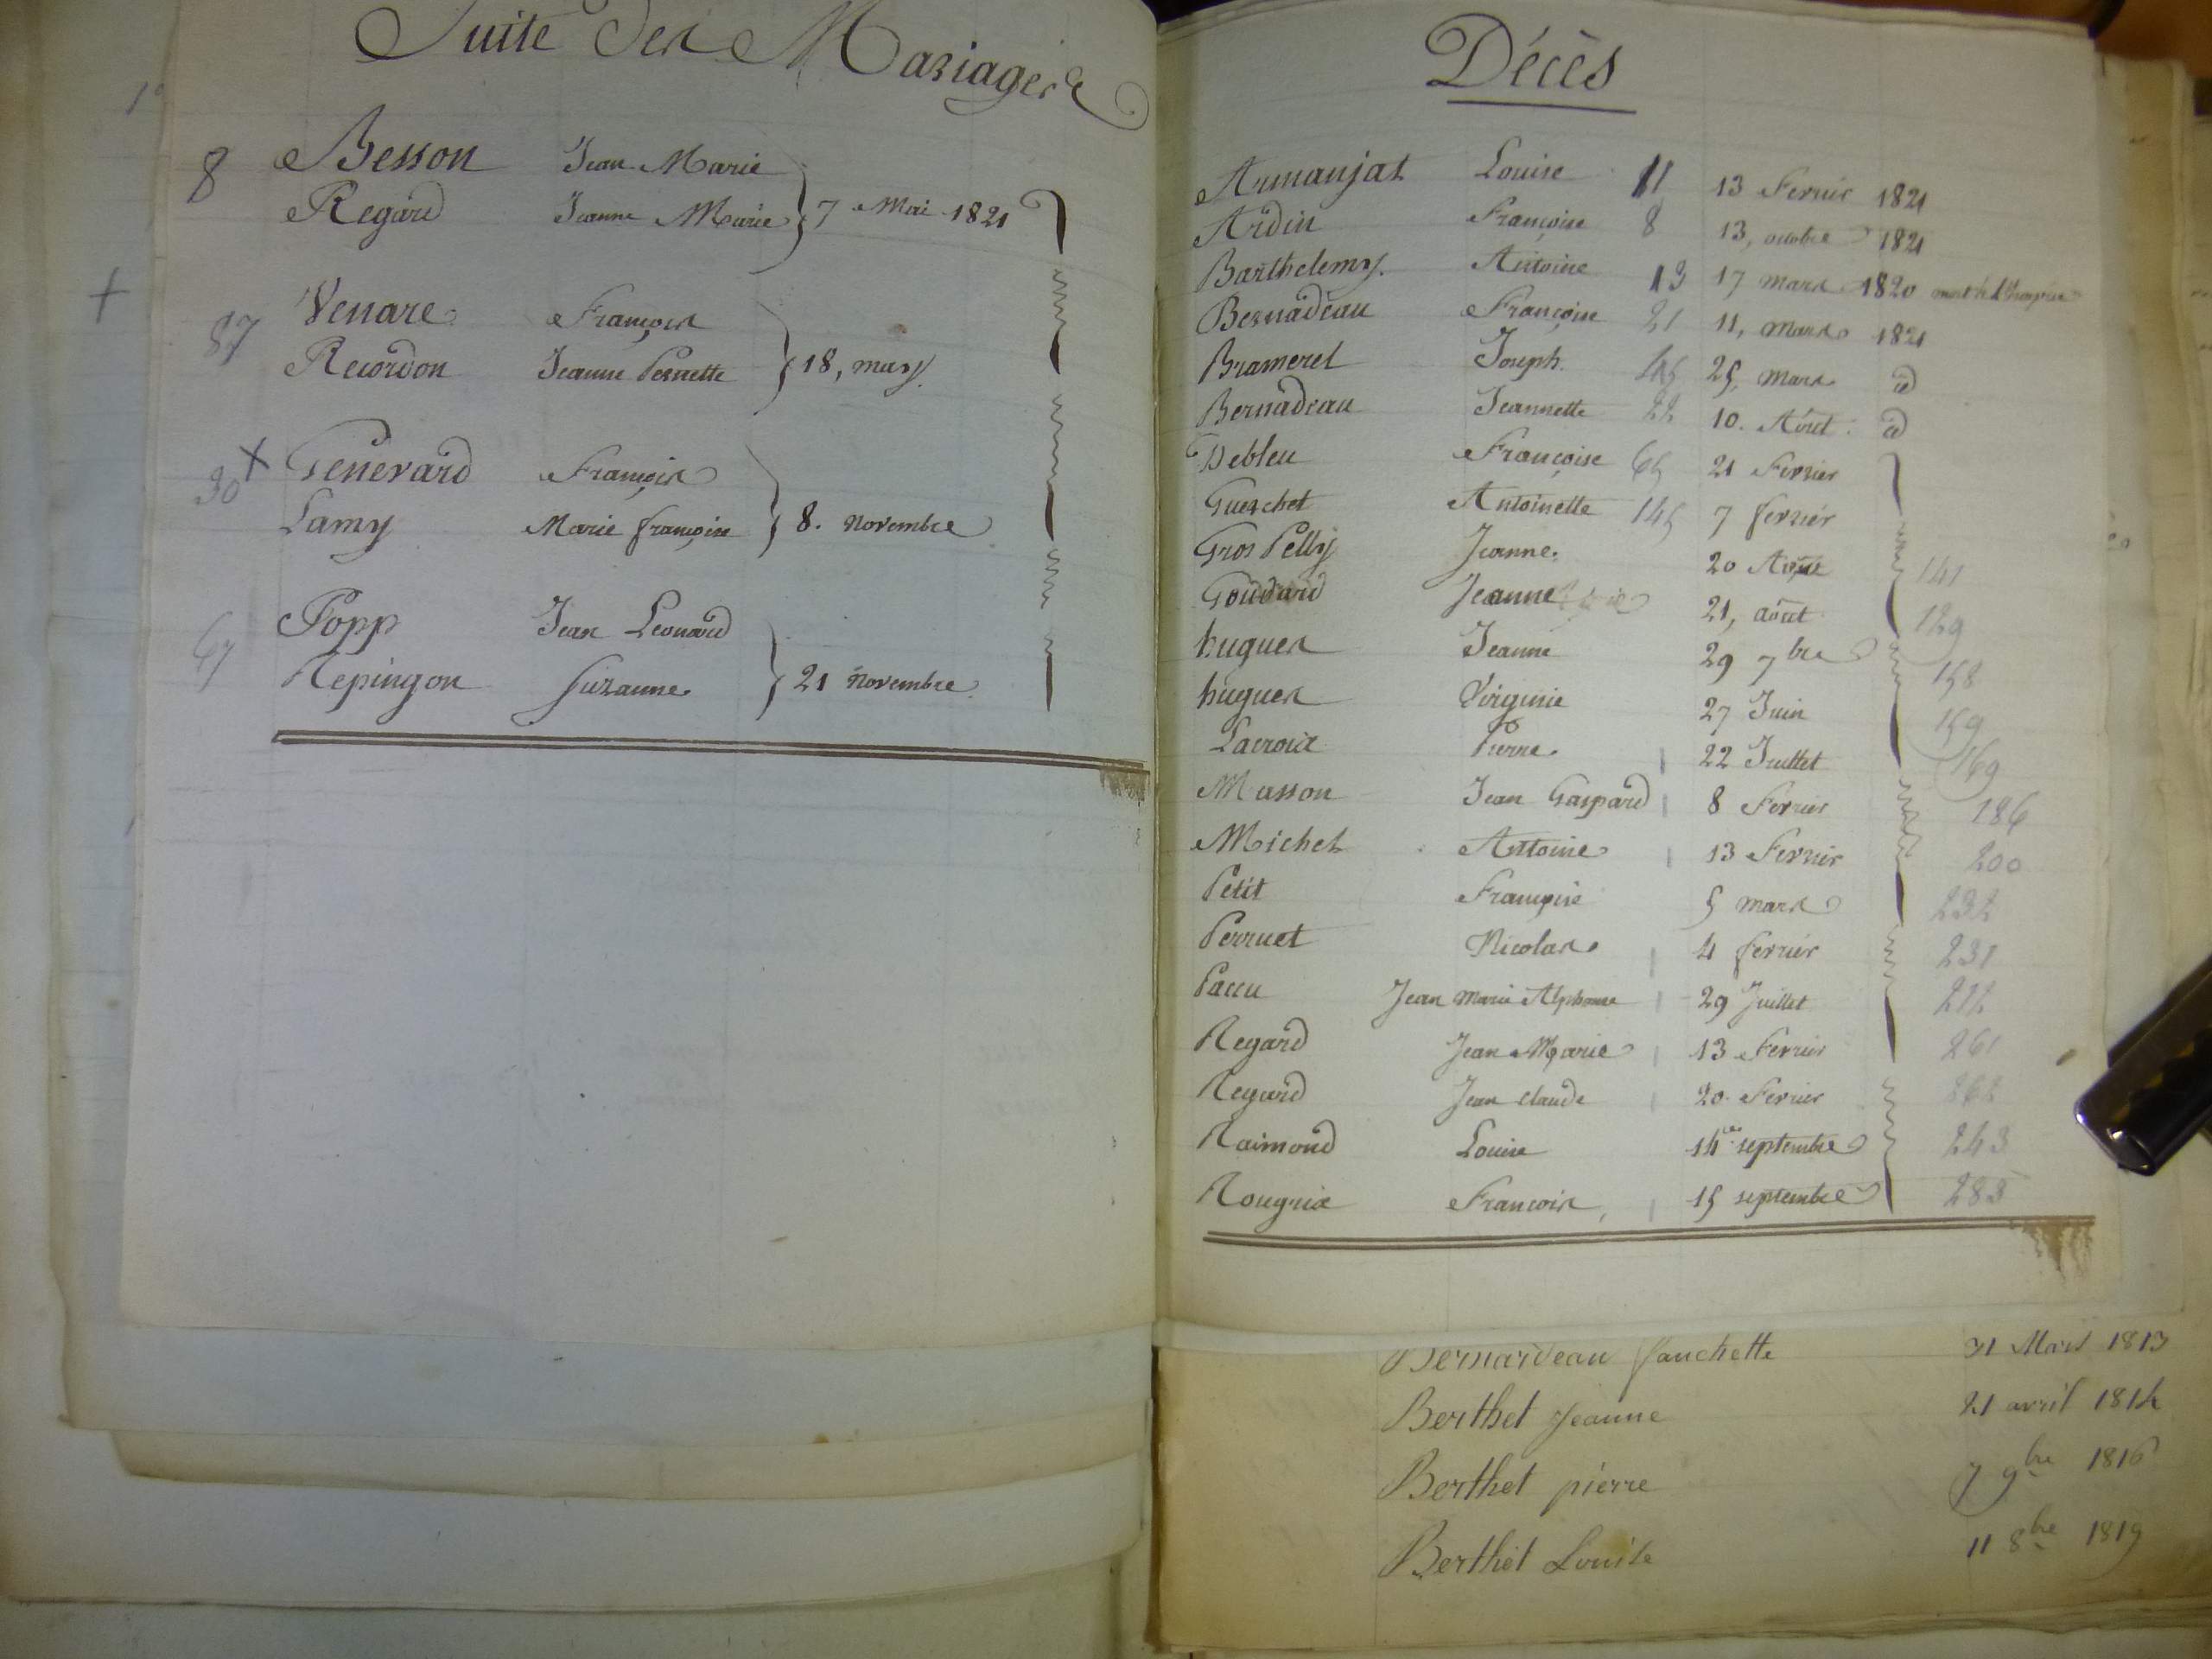 Suite des Mariages
8 Besson Jean Marie
Regard Jeanne Marie } 7 Mai 1821
+
87 Venare François
Recordon Jeanne Pernette } 18, may
30 + Genevard François
Lamy Marie françoise } 8. novembre
67 Popp Jean Leonard
Repingon suzanne } 21 novembre
Décès
Armanjat Louise 11 13 Fevrier 1821
Ardin Françoise 8 13, octobre 1821
Barthelemy Antoine 13 17 mars 1820 mort à l'hospice
Bernadeau Françoise 21 11, mars 1821
Brameret Joseph 45 25, mars d
Bernadeau Jeannette 22 10. Aout d
Debleu Françoise 65 21 Fevrier
Guerchet Antoinette 145 7 fevrier
Gros Pelly Jeanne 20 Aout 141
Goudard Jeanne 21, août 129
hugues Jeanne 29 7bre 158
hugues Virginie 27 Juin 159
Lacroix Pierre 22 Juillet 169
Masson Jean Gaspard 8 Fevrier 186
Michel Antoine 13 Fevrier 200
Petit Françoise 5 mars 232
Perruet Nicolas 4 fevrier 231
Paccu Jean Marie Alphonse 29 Juillet 212
Regard Jean Marie 13 Fevrier 261
Regard Jean Claude 20 Fevrier 262
Raimond Louise 14 septembre 243
Rougnix Francois 15 septembre 283
Bernardeau fanchette 31 Mars 1813
Berthet Jeanne 21 avril 1814
Berthet pierre 7 9bre 1816
Berthet Louise 11 8bre 1819